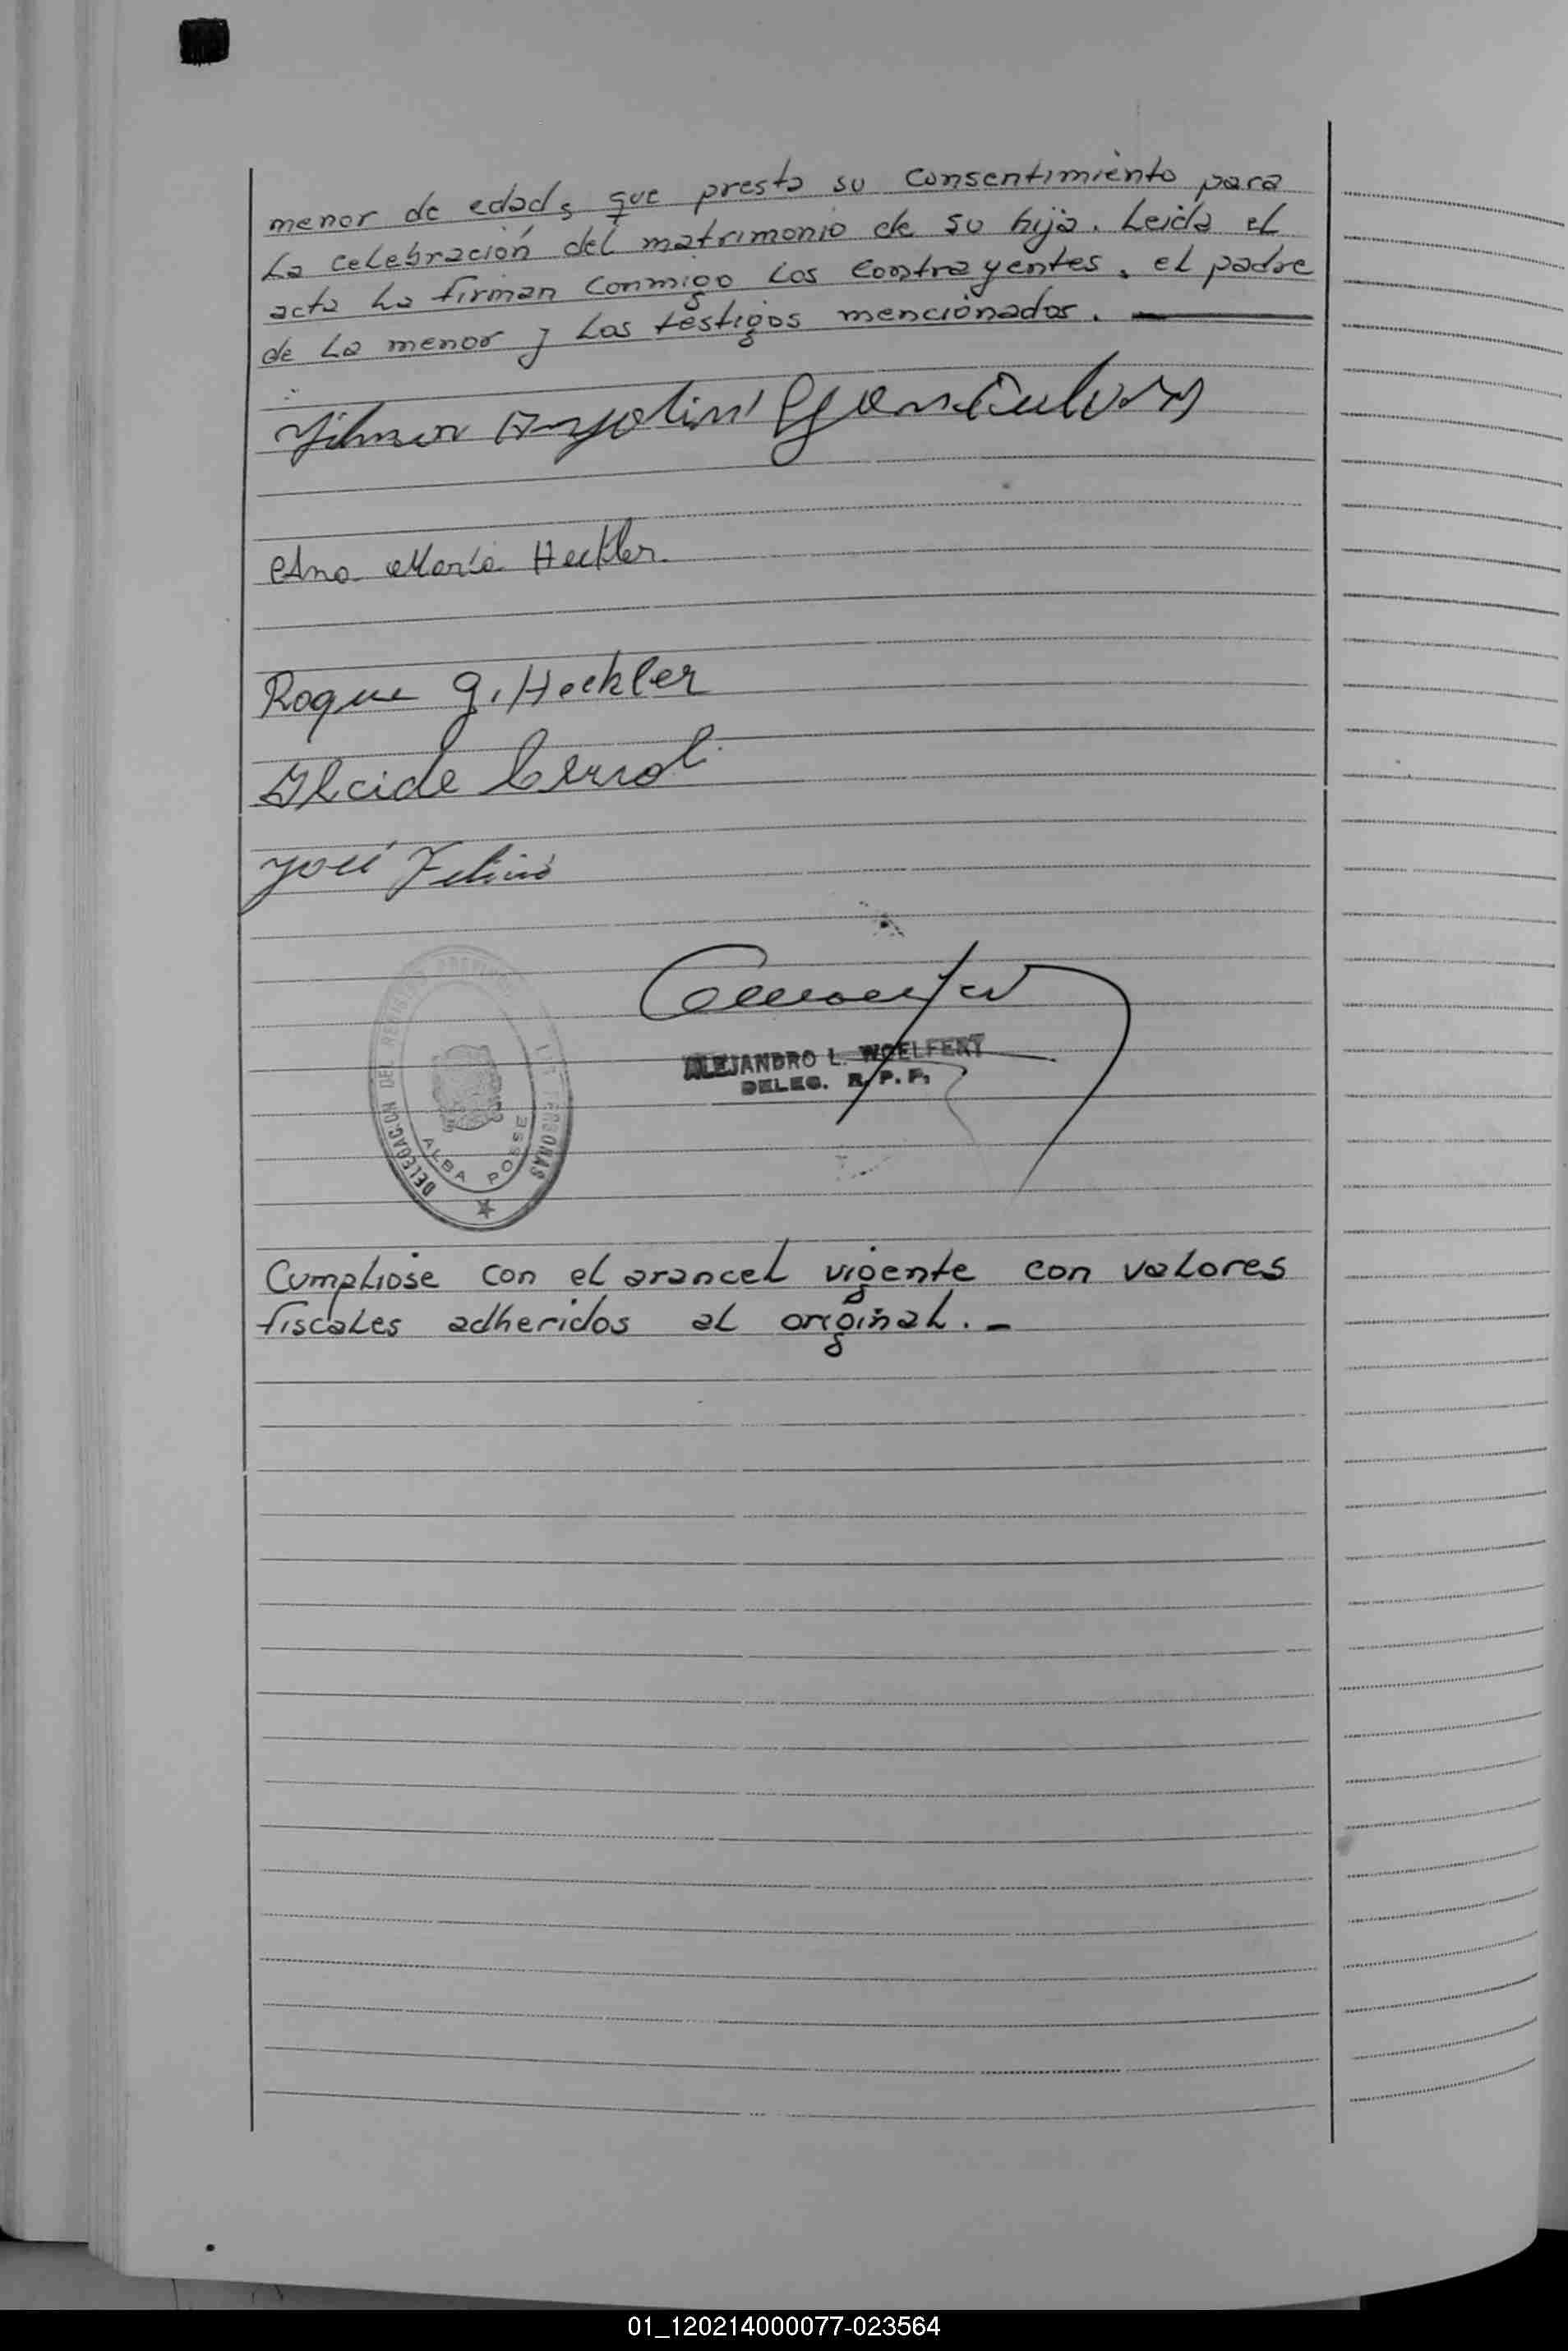 menor de edad, que presta su consentimiento para
La celebración del matrimonio de su hija. Leida el
acta La firman conmigo Los contrayentes, el padre
de La menor y Los testigos mencionados.
Ana María Heckler.
Roque J. Heckler
Alcide
José
DELEGACION DEL REGISTRO PROVINCIAL DE LAS PERSONAS
ALBA POSSE
ALEJANDRO L. WOELFERT
DELEG. R. P. P.
Cumpliose con el arancel vigente con valores
fiscales adheridos al original. -
01_120214000077-023564